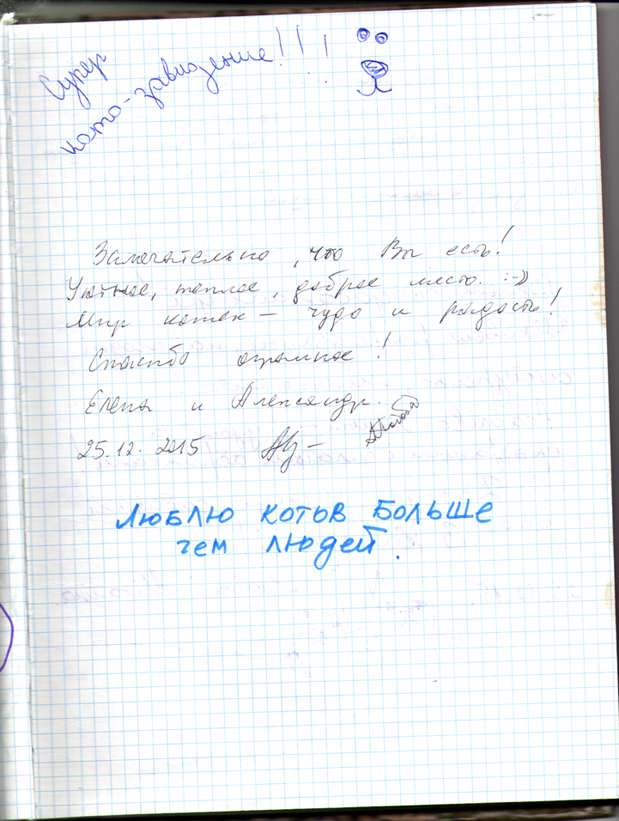 Супер
кото-заведение!!!
Замечательно, что Вы есть!
Уютное, теплое, доброе место. :-))
Мир кошек - чудо и радость!
Спасибо огромное!
Елена и Александр.
25.12.2015
Люблю котов больше
чем людей.